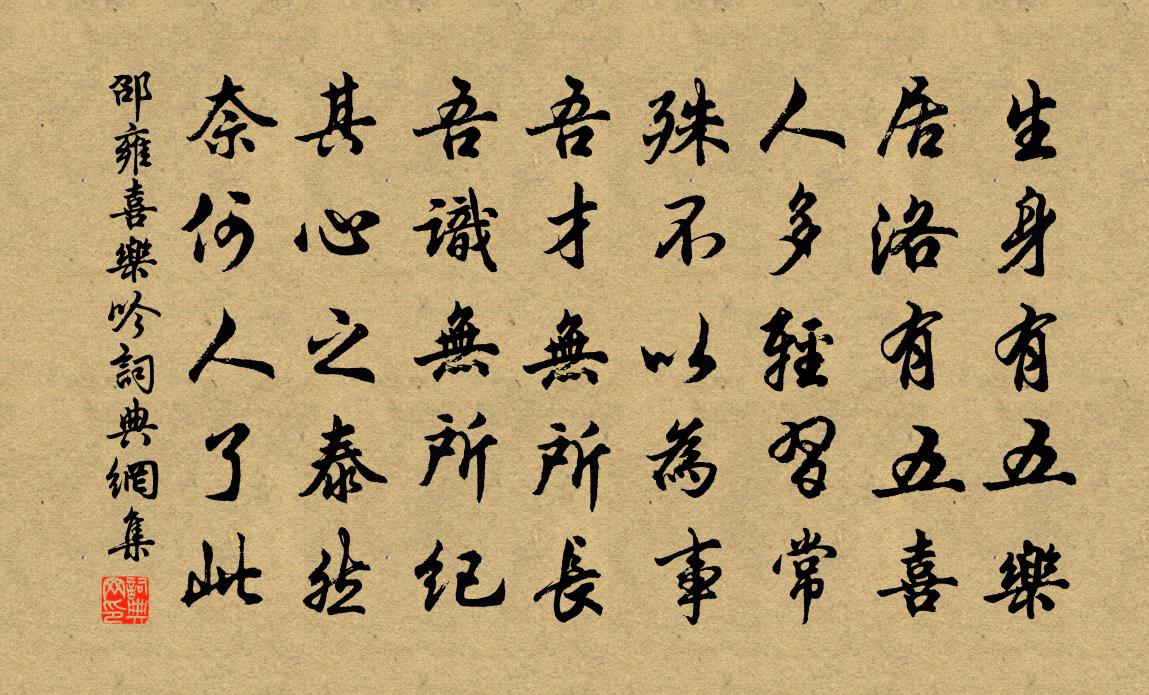 生身有五樂
居洛有五喜
人多輕習常
殊不以為事
吾才無所長
吾識無所紀
其心之泰然
奈何人了此
邵雍喜樂吟詞典網集
詞典网印